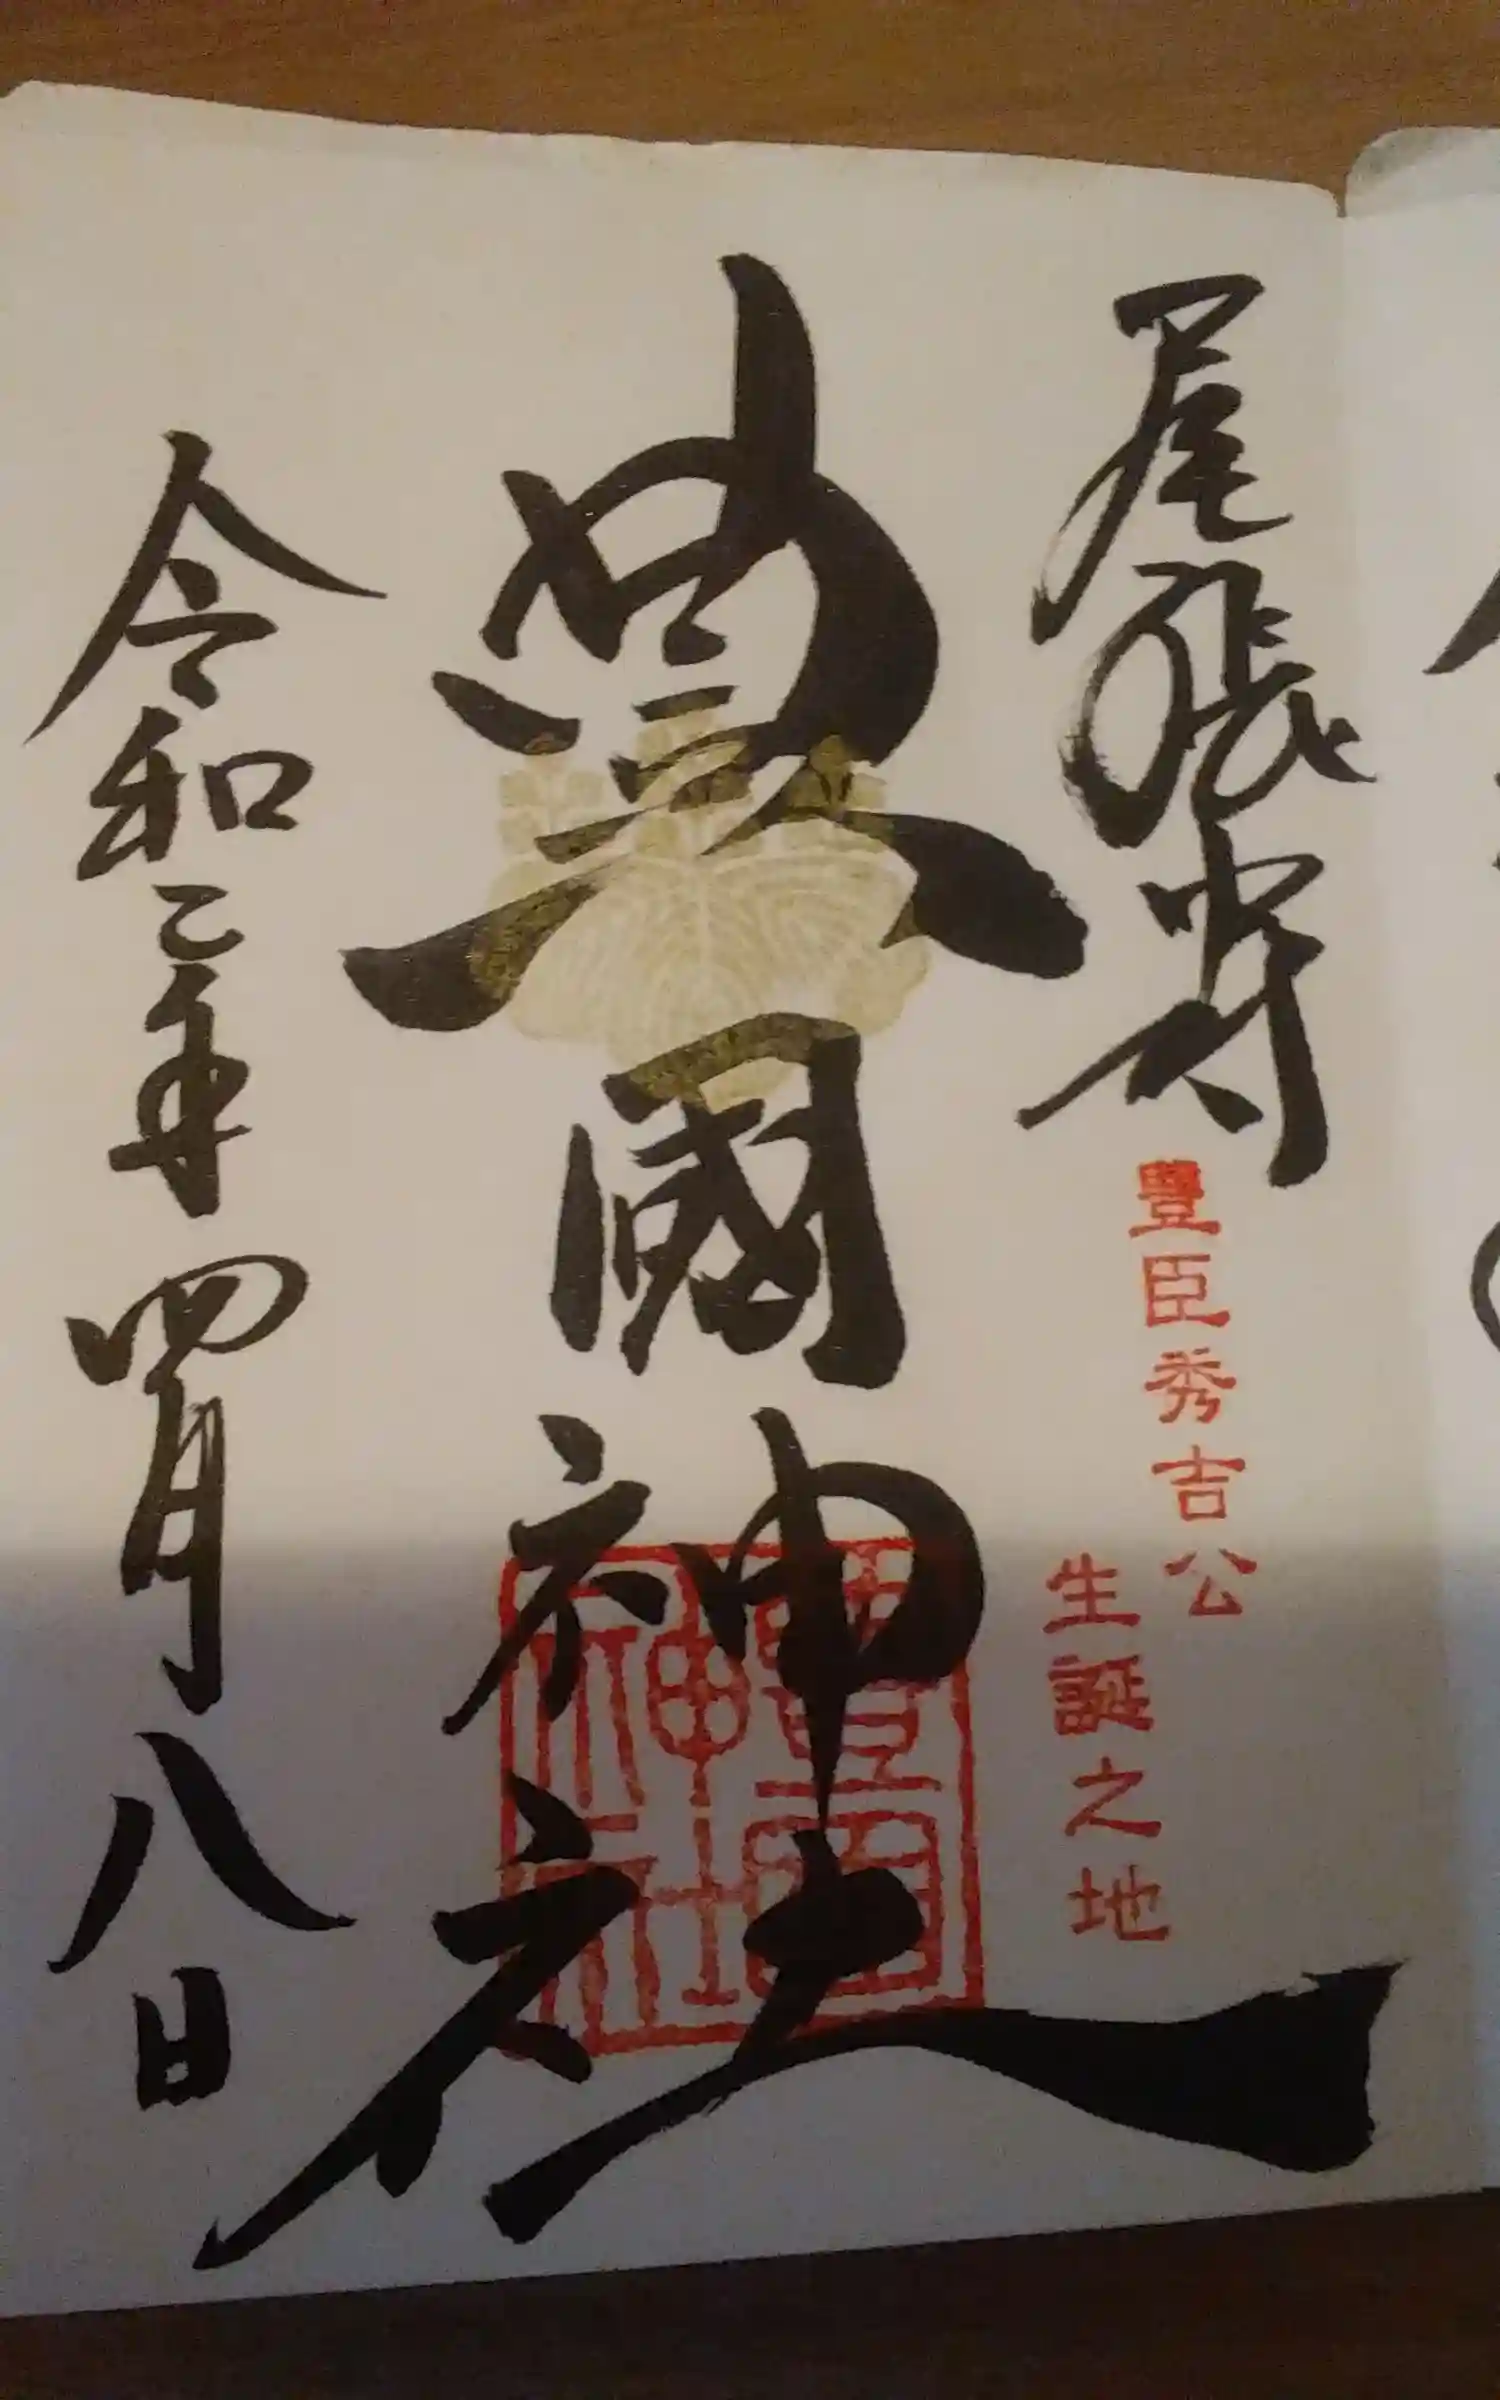 尾張中村
豐臣秀吉公
生誕之地
豐國神社
豐國神社
令和二年四月八日